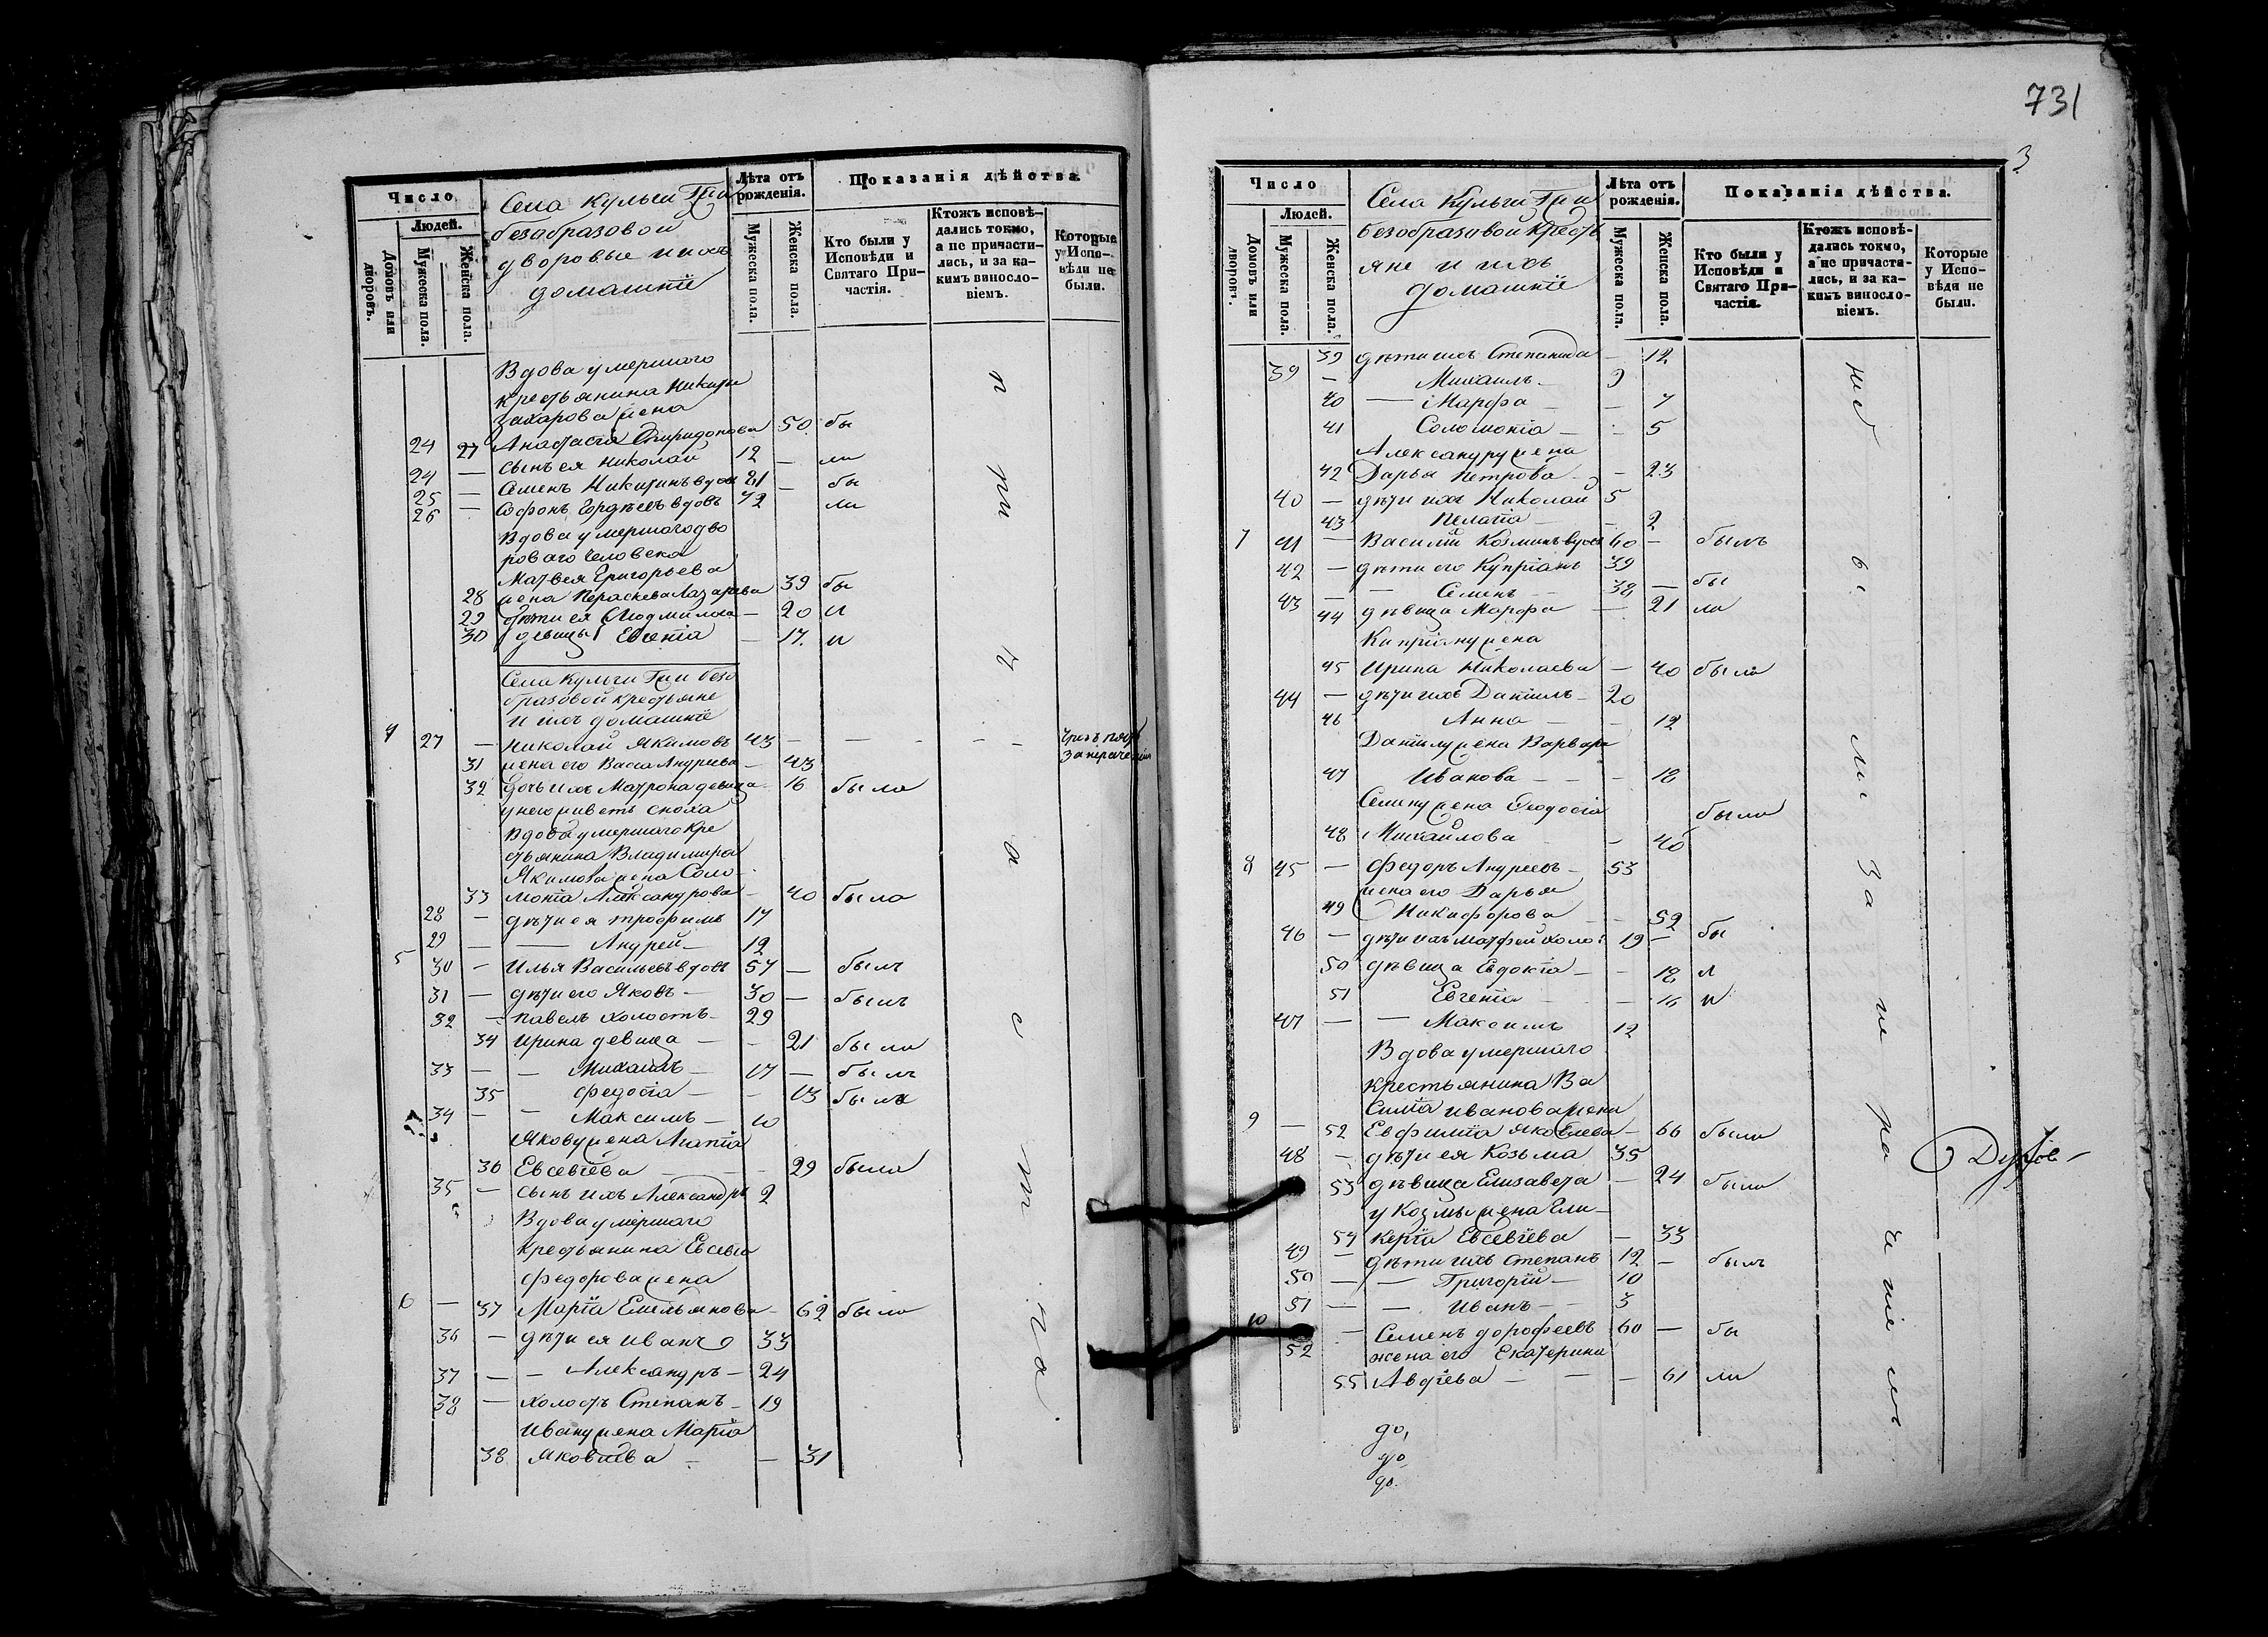 731
3
Число
Людей.
Домовъ или дворовъ.
Мужеска пола.
Женска пола.
Села Кульги Гжи
безобразовой
дворовые и ихъ
домашніе
Лѣта отъ рожденія.
Мужеска пола.
Женска пола.
Показанія дѣйства.
Кто были у Исповѣди и Святаго Причастія.
Ктожъ исповѣдались токмо, а не причастились, и за какимъ винословіемъ.
Которые у Исповѣди не были.
Вдова умершаго
крестьянина Никиты
Захарова жена
24 27 Анастасія Спиридонова 50 бы
24 — сынъ ея Николай 12 — ли
25 — Семенъ Никитинъ вдов 21 — бы
26 — Софонъ Гордѣевъ вдовъ 72 ли
Вдова умершаго дво
роваго человека
Матвея Григорьева
28 жена Параскева Лазарева 39 бы
29 дѣти ея Людмила — 20 л
30 девицы Евгенія — 17 и
Села Кульги Гжи безо
бразовой крестьяне
и ихъ домашніе
4 27 — Николай Якимовъ 43 — — — —
31 жена его Васса Андреева — 43
32 дочь ихъ Матрона девица 16 была
у него живетъ сноха
Вдова умершаго кре
стьянина Владимира
Якимова жена Соло-
33 монія Александрова — 40 была
28 — дѣти ея Трофимъ 17
29 — — Андрей — 12
5 30 — Илья Васильевъ вдовъ 57 — былъ
31 — дѣти его Яковъ — 30 — былъ
32 — Павелъ холостъ — 29
34 Ирина девица — — 21 была
33 — — Михаилъ — 17 — былъ
35 Федосія — — 13 была
34 — — Максимъ — 10
Якову жена Агапія
36 Евсевіева — — 29 была
35 — сынъ ихъ Александръ 2
Вдова умершаго
крестьянина Евсевія
Федорова жена
6 — 37 Марія Емельянова — 62 была
36 — дѣти ея Иванъ 33
37 — — Александръ — 24
38 — холостъ Степанъ — 19
Ивану жена Марія
38 Яковлева — — 31
Число
Людей.
Домовъ или дворовъ.
Мужеска пола.
Женска пола.
Села Кульги Гжи
безобразовой кресть
яне и ихъ
домашніе
Лѣта отъ рожденія.
Мужеска пола.
Женска пола.
Показанія дѣйства.
Кто были у Исповѣди и Святаго Причастія.
Ктожъ исповѣдались токмо, а не причастились, и за какимъ винословіемъ.
Которые у Исповѣди не были.
39 дѣти ихъ Степанида — 12
39 — Михаилъ — 9
40 — Марфа — — 7
41 Соломонія — — 5
Александру жена
42 Дарья Петрова — — 23
40 — дѣти ихъ Николай 5
43 Пелагія — — 2
7 41 — Василій Козминъ вдовъ 60 — былъ
42 — дѣти его Купріанъ 39
43 — — Семенъ — 38 — бы
44 дѣвица Марфа — 21 ла
Кипріану жена
45 Ирина Николаева — 40 была
44 — дѣти ихъ Даніилъ — 20
46 Анна — — 12
Даніилу жена Варвара
47 Иванова — — — 18
Семену жена Феодосія
48 Михайлова — 40 была
8 45 — Федоръ Андреевъ — 53
жена его Дарья
49 Никифорова — — 52
46 — дѣти ихъ Матфей холос 19 — бы
50 дѣвица Евдокія — — 18 л
51 Евгенія — — 16 и
47 — — Максимъ 12
Вдова умершаго
крестьянина Ва
силія Иванова жена
9 — 52 Евфимія Яковлева — 66 была
48 — дѣти ея Козьма 35
53 дѣвица Елизавета — 24 была
у Козмы жена Гли-
54 керія Евсевіева — 33
49 — дѣти ихъ Степанъ 12 — былъ
50 — — Григорій — 10
51 — — Иванъ — 3
10 52 — Семенъ Дорофеевъ 60 — бы
жена его Екатерина
55 Авдіева — — — 61 ли
до,
до
до.
не бы ли за не ра че ніе мъ